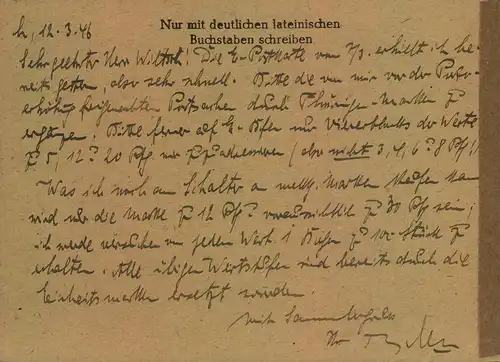 Nur mit deutlichen lateinischen
Buchstaben schreiben
L, 12.3.46
Sehr geehrter Herr Wittich! Die E-Postkarte vom 7/3. erhielt ich be-
reits gestern, also sehr schnell. Bitte die von mir vor der Porto-
erhöhung Postsachen durch Thüringe-Marken zu
ergänzen. Bitte ferner auf E-Bfen nur Viererblocks der Werte
zu 5, 12 & 20 Pfg nur (also nicht 3, 4, 6 & 8 Pfg)!
Was ich noch am Schalter an Marken kaufen kann
wird nur die Marke zu 12 Pfg & voraussichtlich zu 30 Pfg sein;
ich werde versuchen von jedem Wert 1 Bogen zu 100 Stück zu
erhalten. Alle übrigen Wertstufen sind bereits durch die
Einheitsmarken ersetzt worden.
Mit Sammlergruss
Ihr